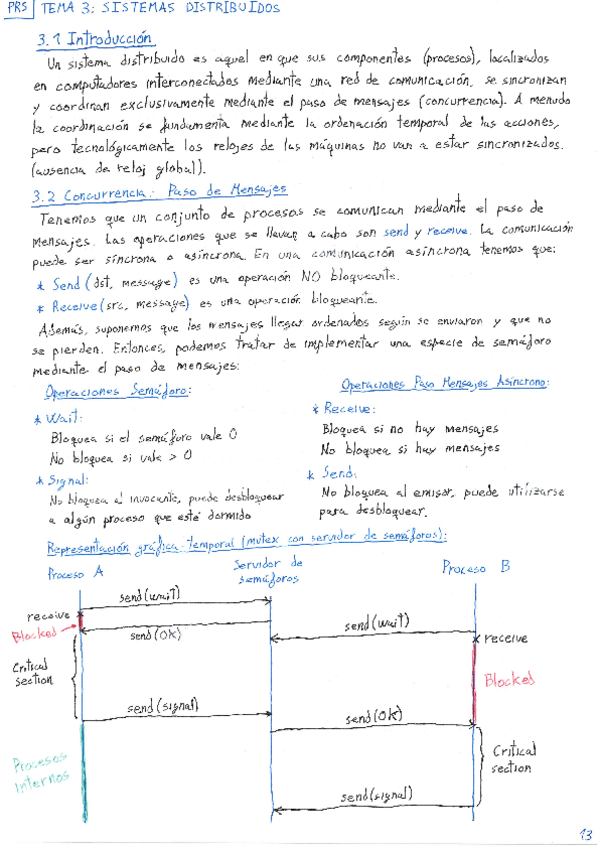 PRS TEMA 3: SISTEMAS DISTRIBUIDOS
3.1 Introducción
Un sistema distribuido es aquel en que sus componentes (procesos), localizados
en computadores interconectados mediante una red de comunicación, se sincronizan
y coordinan exclusivamente mediante el paso de mensajes (concurrencia). A menudo
la coordinación se fundamenta mediante la ordenación temporal de las acciones,
pero tecnológicamente los relojes de las máquinas no van a estar sincronizados.
(ausencia de reloj global).
3.2 Concurrencia: Paso de Mensajes
Tenemos que un conjunto de procesos se comunican mediante el paso de
mensajes. Las operaciones que se llevan a cabo son send y receive. La comunicación
puede ser síncrona o asíncrona. En una comunicación asíncrona tenemos que:
* Send (dst, message) es una operación NO bloqueante.
* Receive (src, message) es una operación bloqueante.
Además, suponemos que los mensajes llegan ordenados según se enviaron y que no
se pierden. Entonces, podemos tratar de implementar una especie de semáforo
mediante el paso de mensajes:
Operaciones Semáforo:
* Wait:
Bloquea si el semáforo vale 0
No bloquea si vale > 0
* Signal:
No bloquea al invocante, puede desbloquear
a algún proceso que esté dormido
Operaciones Paso Mensajes Asíncrono:
* Receive:
Bloquea si no hay mensajes
No bloquea si hay mensajes
* Send:
No bloquea al emisor, puede utilizarse
para desbloquear.
Representación gráfica-temporal (mutex con servidor de semáforos):
Proceso A
Servidor de
semáforos
Proceso B
send(wait)
receive
Blocked
send(OK)
send(wait)
receive
Critical
section
Blocked
send(signal)
send(OK)
Procesos
Internos
Critical
section
send(signal)
13